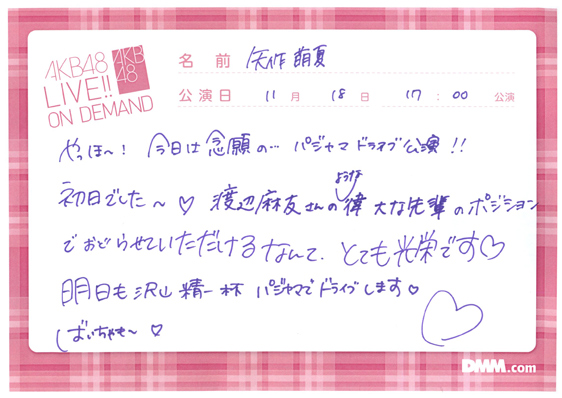 AKB48
LIVE!!
ON DEMAND
AKB
48
名前 矢作萌夏
公演日 11月 18日 17:00 公演
やっほ〜! 今日は念願の… パジャマドライブ公演!!
初日でした〜♡ 渡辺麻友さんのような偉大な先輩のポジション
でおどらせていただけるなんて、とても光栄です♡
明日も沢山精一杯 パジャマでドライブします♡
ばいちゃも〜♡
DMM.com